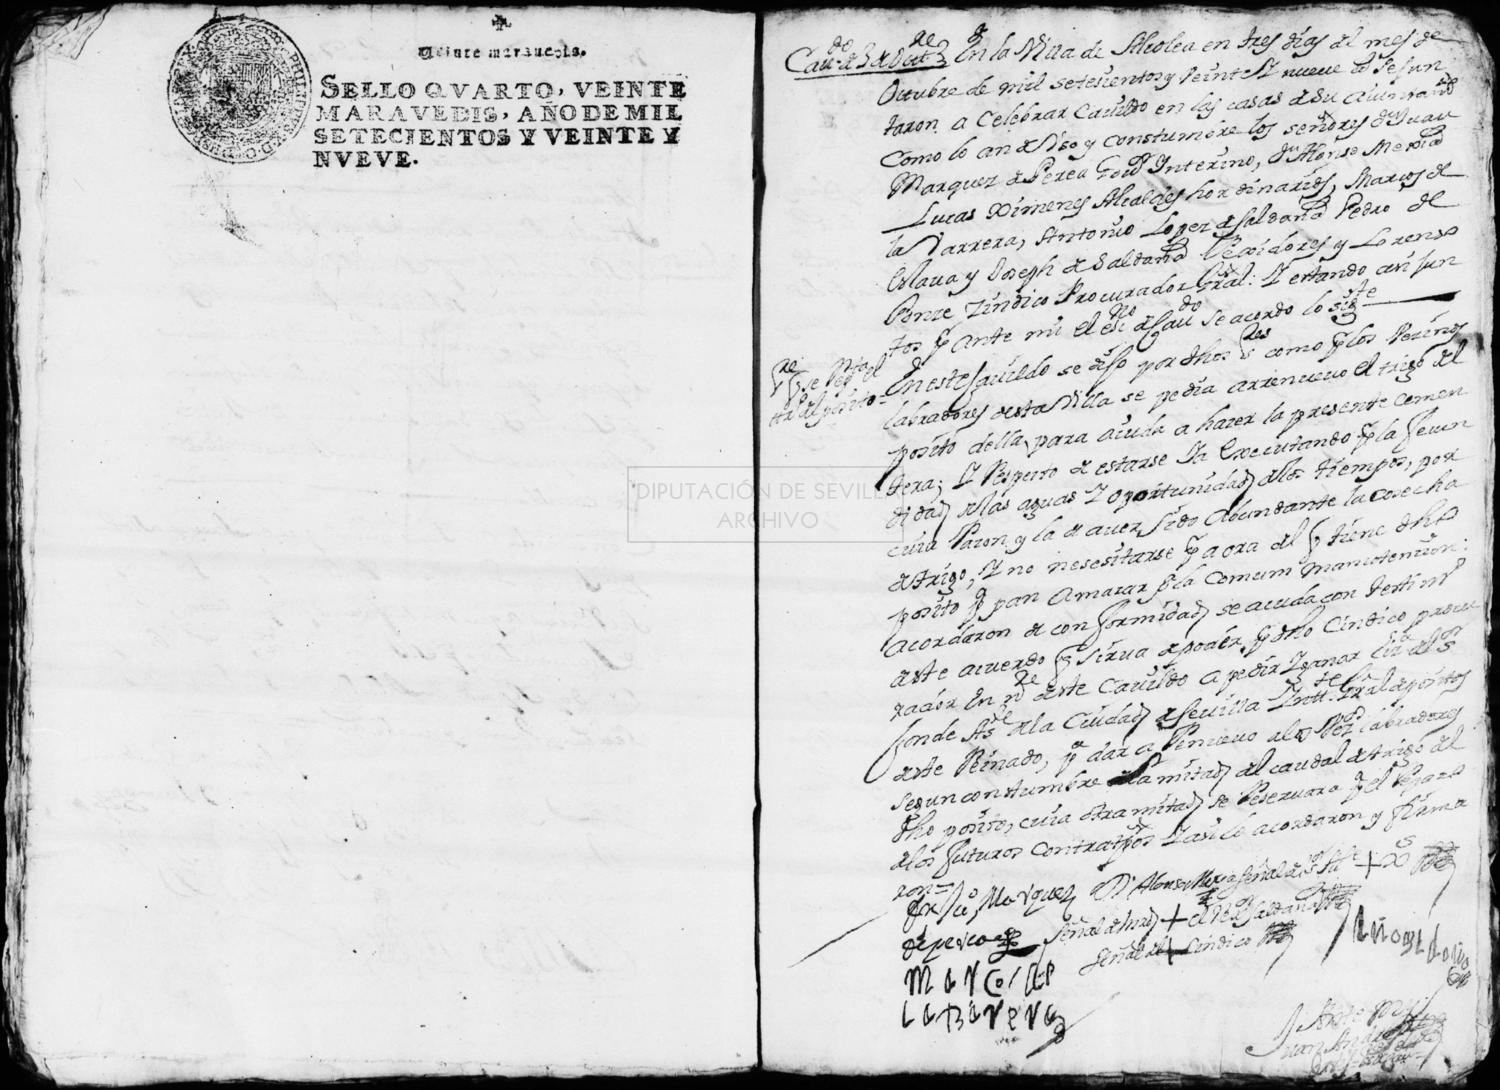 Veinte maravedis.
SELLO QVARTO, VEINTE
MARAVEDIS, AÑO DE MIL
SETECIENTOS Y VEINTE Y
NVEVE.
Cauᵈᵒ de 3 de Octᵉ
En la Villa de Alcolea en tres dias del mes de
Octubre de mil setesientos y Veinte Y nueve aᵈ Se Jun
taron a Celebrar Cavildo en las casas de su aiuntamᵗᵒ
Como lo an de Vso y Constumbre los señores dⁿ Juan
Marquez de Perea Goᵛᵈ Interino, dⁿ Alonso Mexia
Lucas Ximenes Alcaldes hordinarios, Marcos de
la Barrera, Antonio Lopez de Saldaña Pedro de
Eslava y Joseph de Saldaña Rexidores y Lorenso
Ponze Zindico Procurador Gral: Y estando asi Jun
tos p ante mi el esⁿᵒ de Cauᵈᵒ se acordo lo sigᵗᵉ
Sᵣᵉ se pᵗᵃ el
trᵒ del posito
En este Cavildo se dijo por dhos sʳᵉˢ como p los Vezinos
labradores desta Villa se pedia a rrenuevo el trigo del
posito della, para aiuda a hazer la presente cemen
tera; Y Respecto de estarse Ya executando p la Secun
didad de las aguas Y oportunidad de los tiempos, por
cuia Razon y la de aver sido Abundante la Cosecha
de trigo, Y no nesesitarse p aora del q tiene dho
posito p pan amasar p la comum manutension:
acordaron de conformidad se acuda con testimᵒ
deste acuerdo q sirva de poder p dho Cindico procu
rador En nʳᵉ de este Cavildo a pedir Y ganar liᵃ del Sᵒʳ
Conde Asᵗᵉ de la Ciudad de Sevilla Yntᵗᵉ Gral de positos
deste Reinado, pᵃ dar a Renuevo a los Vezᵒˢ labradores
segun constumbre la mitad del caudal de trigo del
dho posito, cuia otra mitad se Reservara p el Reparo
de los futuros Contratpos Y asi lo acordaron y firma
ron =
Marquez
de perea
Dⁿ Alonso Mexia
Señal de
Señal de + el Rexʳ Saldaña
Señal del + Cindico
Marcos de
la Barrera
Ante my
Juan
DIPUTACIÓN DE SEVILLA
ARCHIVO